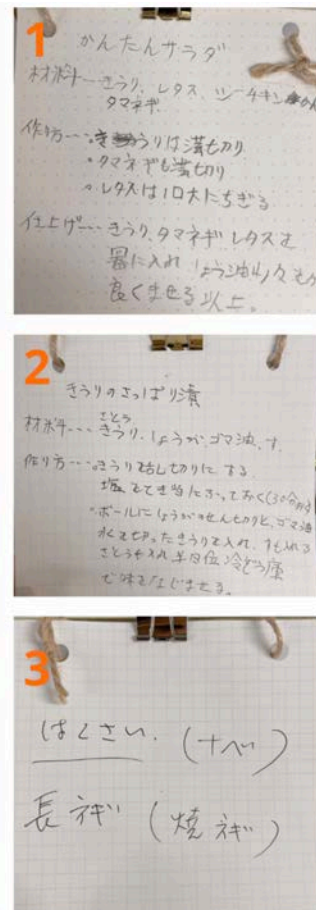 1
かんたんサラダ
材料…きうり、レタス、シーチキンかん
タマネギ
作方…きうりは満切り
・タマネギも満切り
・レタスは1口大にちぎる
仕上げ…きうり、タマネギ レタスを
器に入れ しょう油少々
良くませる以上。
2
きうりのさっぱり漬
さとう
材料…きうり、しょうが、ゴマ油、す
作り方…きうり 切りにする
塩をてき当にふっておく(30分
・ボールにしょうがのせん切りと、ゴマ油
水を切ったきうりを入れ、すも入れる
さとうも入れ 半日位 冷ぞう庫
で味をなじませる。
3
はくさい、(ナベ)
長ネギ (焼ネギ)